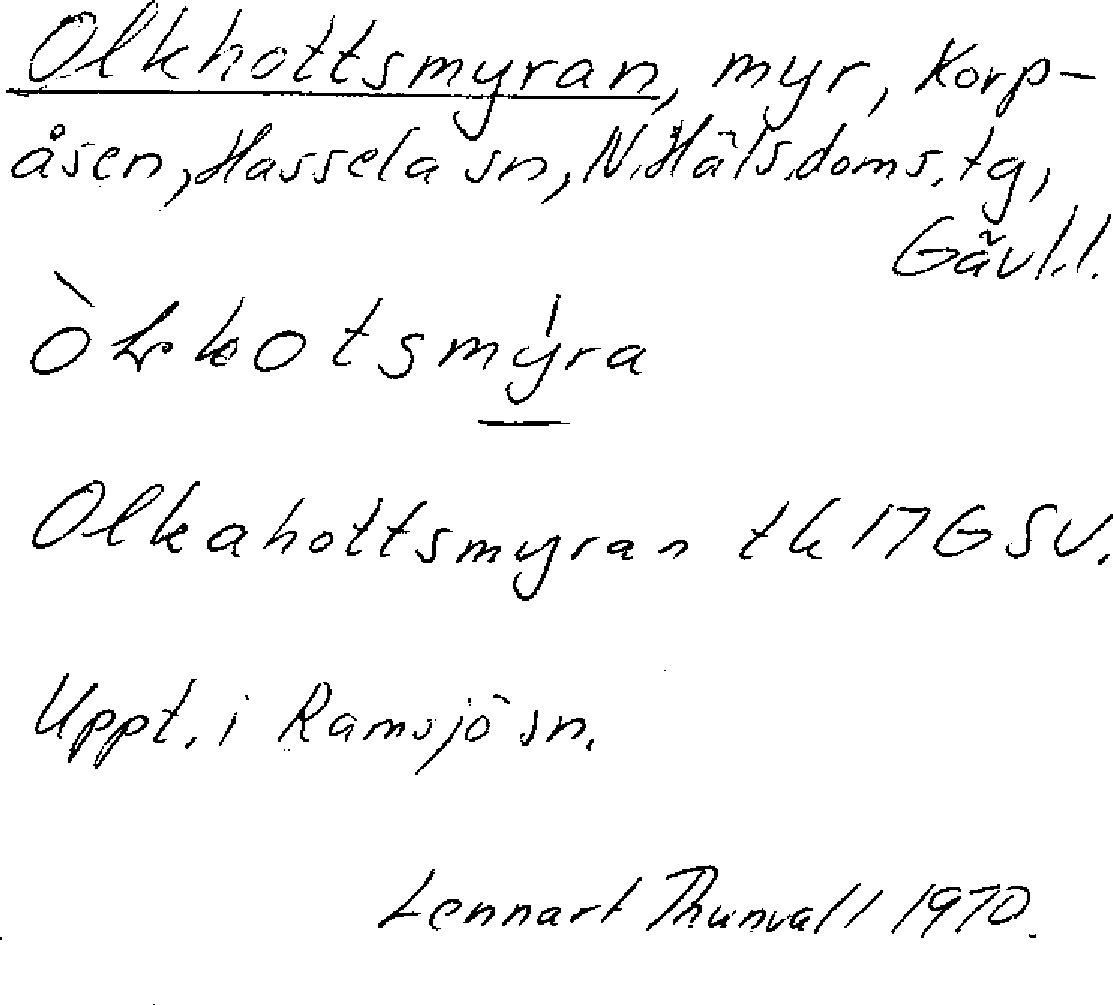 Olkhottsmyran, myr, Korp-
åsen, Hassela sn, N. Häls. doms. tg,
Gävl. l.
Òłkotsmýra
Olkahottsmyran tk 17G SV.
Uppt. i Ramsjö sn.
Lennart Thunvall 1970.